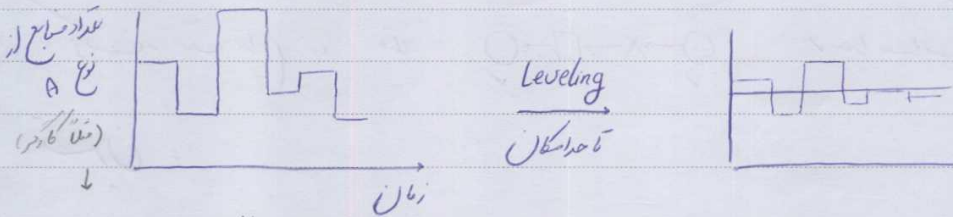 تعداد منابع از
نوع A
(مثلاً کارگر)
زمان
Leveling
تا حد امکان